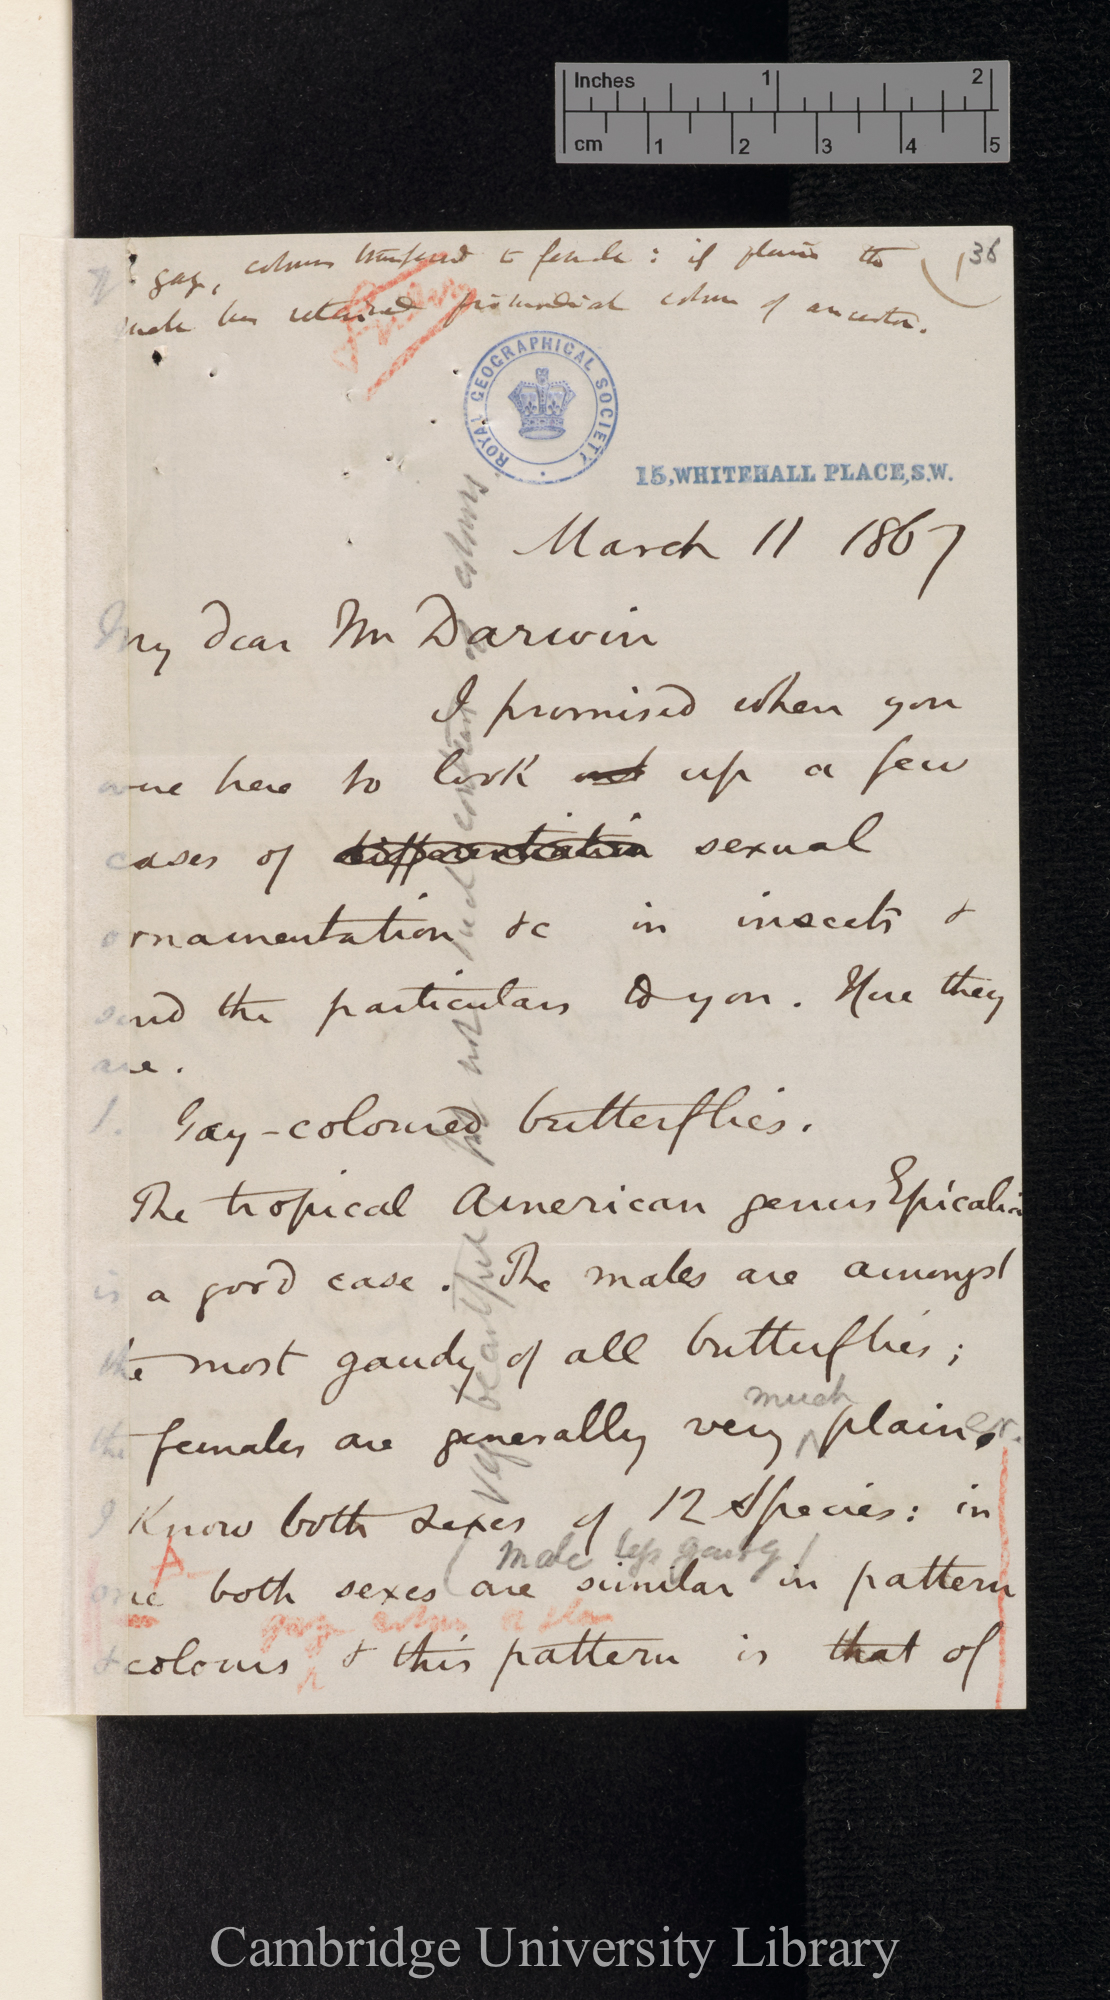 Inches 1 2
cm 1 2 3 4 5
If gay, colours transferred to female : if plain the
male has retained primordial colour of ancestor.
36
ROYAL GEOGRAPHICAL SOCIETY
15, WHITEHALL PLACE, S.W.
March 11 1867
My dear Mr Darwin
I promised when you
were here to look out up a few
cases of differentiation sexual
ornamentation &c in insects &
send the particulars to you. Here they
are.
1. Gay-coloured butterflies.
The tropical American genus Epicalia
is a good case. The males are amongst
the most gaudy of all butterflies;
much
the females are generally very plainer.
I know both sexes of 12 species: in
A (male less gaudy)
one both sexes are similar in pattern
gay colour
& colours & this pattern is that of
very beautiful but not colours
Cambridge University Library